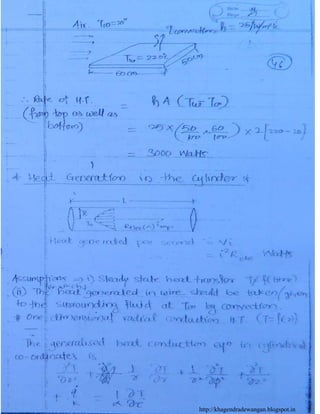 Air. T∞=20° convection h = 25 W/m²K
Tw = 220°C
60 cm 50 cm
46
∴ Rate of H.T. = h A (Tw - T∞)
(from top as well as
bottom) = 25 × (50/100 × 60/100) × 2 [220 - 20]
= 3000 Watts
* Heat Generation in the Cylinder *
L
R
Heat generated per second = Vi
= i² R Watts
Assumptions → i) Steady state heat transfer T≠f(time)
(ii) The heat generated in wire should be taken/given
to the surrounding fluid at T∞ by convection
* One dimensional radial conduction H.T. (T=f(r))
The generalised heat conduction eqn in cylindrical
co-ordinates is
∂²T/∂r² + 1/r ∂T/∂r + 1/r² ∂²T/∂φ² + ∂²T/∂z²
+ q̇/k = 1/α ∂T/∂τ
http://khagendradewangan.blogspot.in